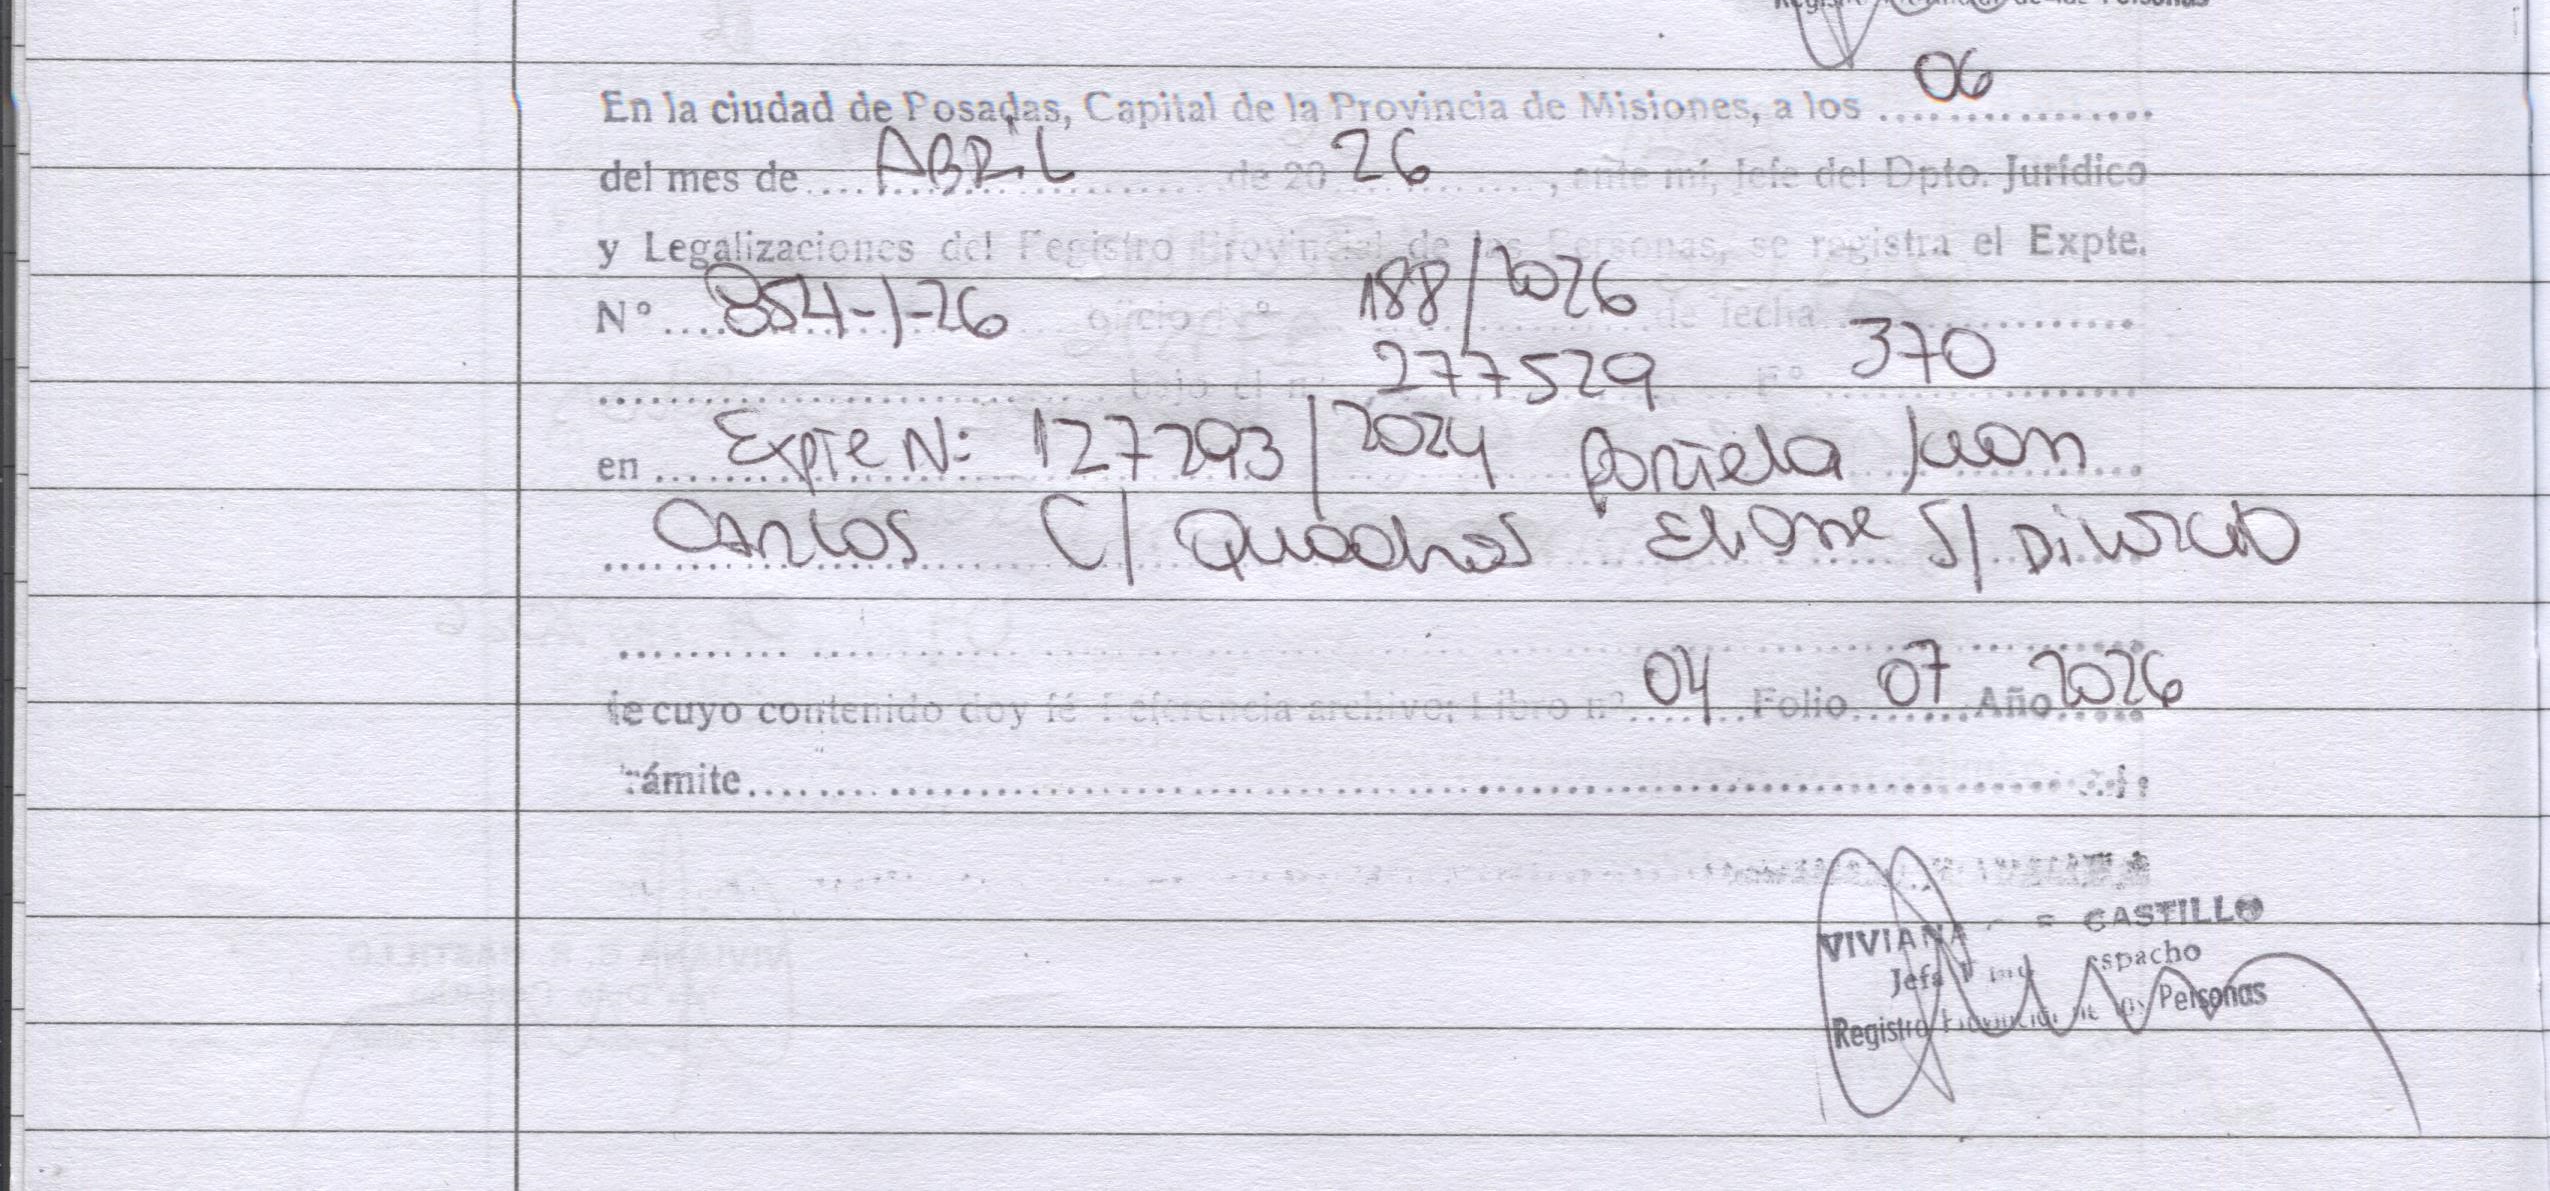 Registro Provincial de las Personas
En la ciudad de Posadas, Capital de la Provincia de Misiones, a los ........ 06 ........
del mes de .... ABRIL .... de 20 26 ...., ante mí, Jefe del Dpto. Jurídico
y Legalizaciones del Registro Provincial de las Personas, se registra el Expte.
Nº .... 854-1-26 oficio Nº 188/2026 de fecha ........
........ bajo el nº 277529 Fº 370 ........
en .... Expte N: 127293/2024 Portela Juan
Carlos C/ Quadros Eliane S/ Divorcio
........
de cuyo contenido doy fé Referencia archivo; Libro nº 04 Folio 07 Año 2026
Trámite ........
VIVIANA CASTILLO
Jefa Despacho
Registro Provincial de las Personas